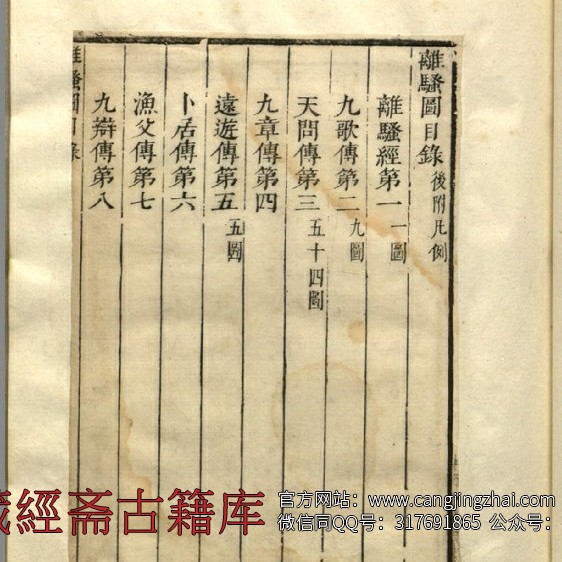 離騷圖目錄 後附凡例
離騷經第一 一圖
九歌傳第二 九圖
天問傳第三 五十四圖
九章傳第四
遠遊傳第五 五圖
卜居傳第六
漁父傳第七
九辯傳第八
離騷圖目錄
藏經斋古籍库
官方网站：www.cangjingzhai.com
微信同QQ号：317691865 公众号：